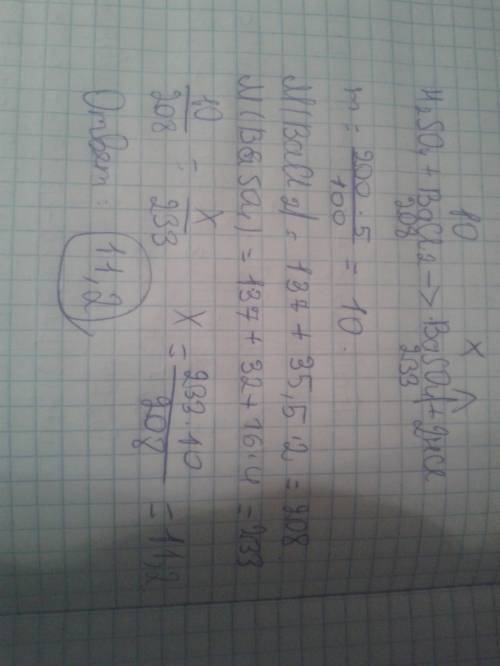 10 x
H₂SO₄ + BaCl₂ → BaSO₄ + 2HCl
208 233
m = 200·5/100 = 10.
M(BaCl₂) = 137 + 35,5·2 = 208
M(BaSO₄) = 137 + 32 + 16·4 = 233
10/208 = x/233 x = 233·10/208 = 11,2
Ответ: 11,2